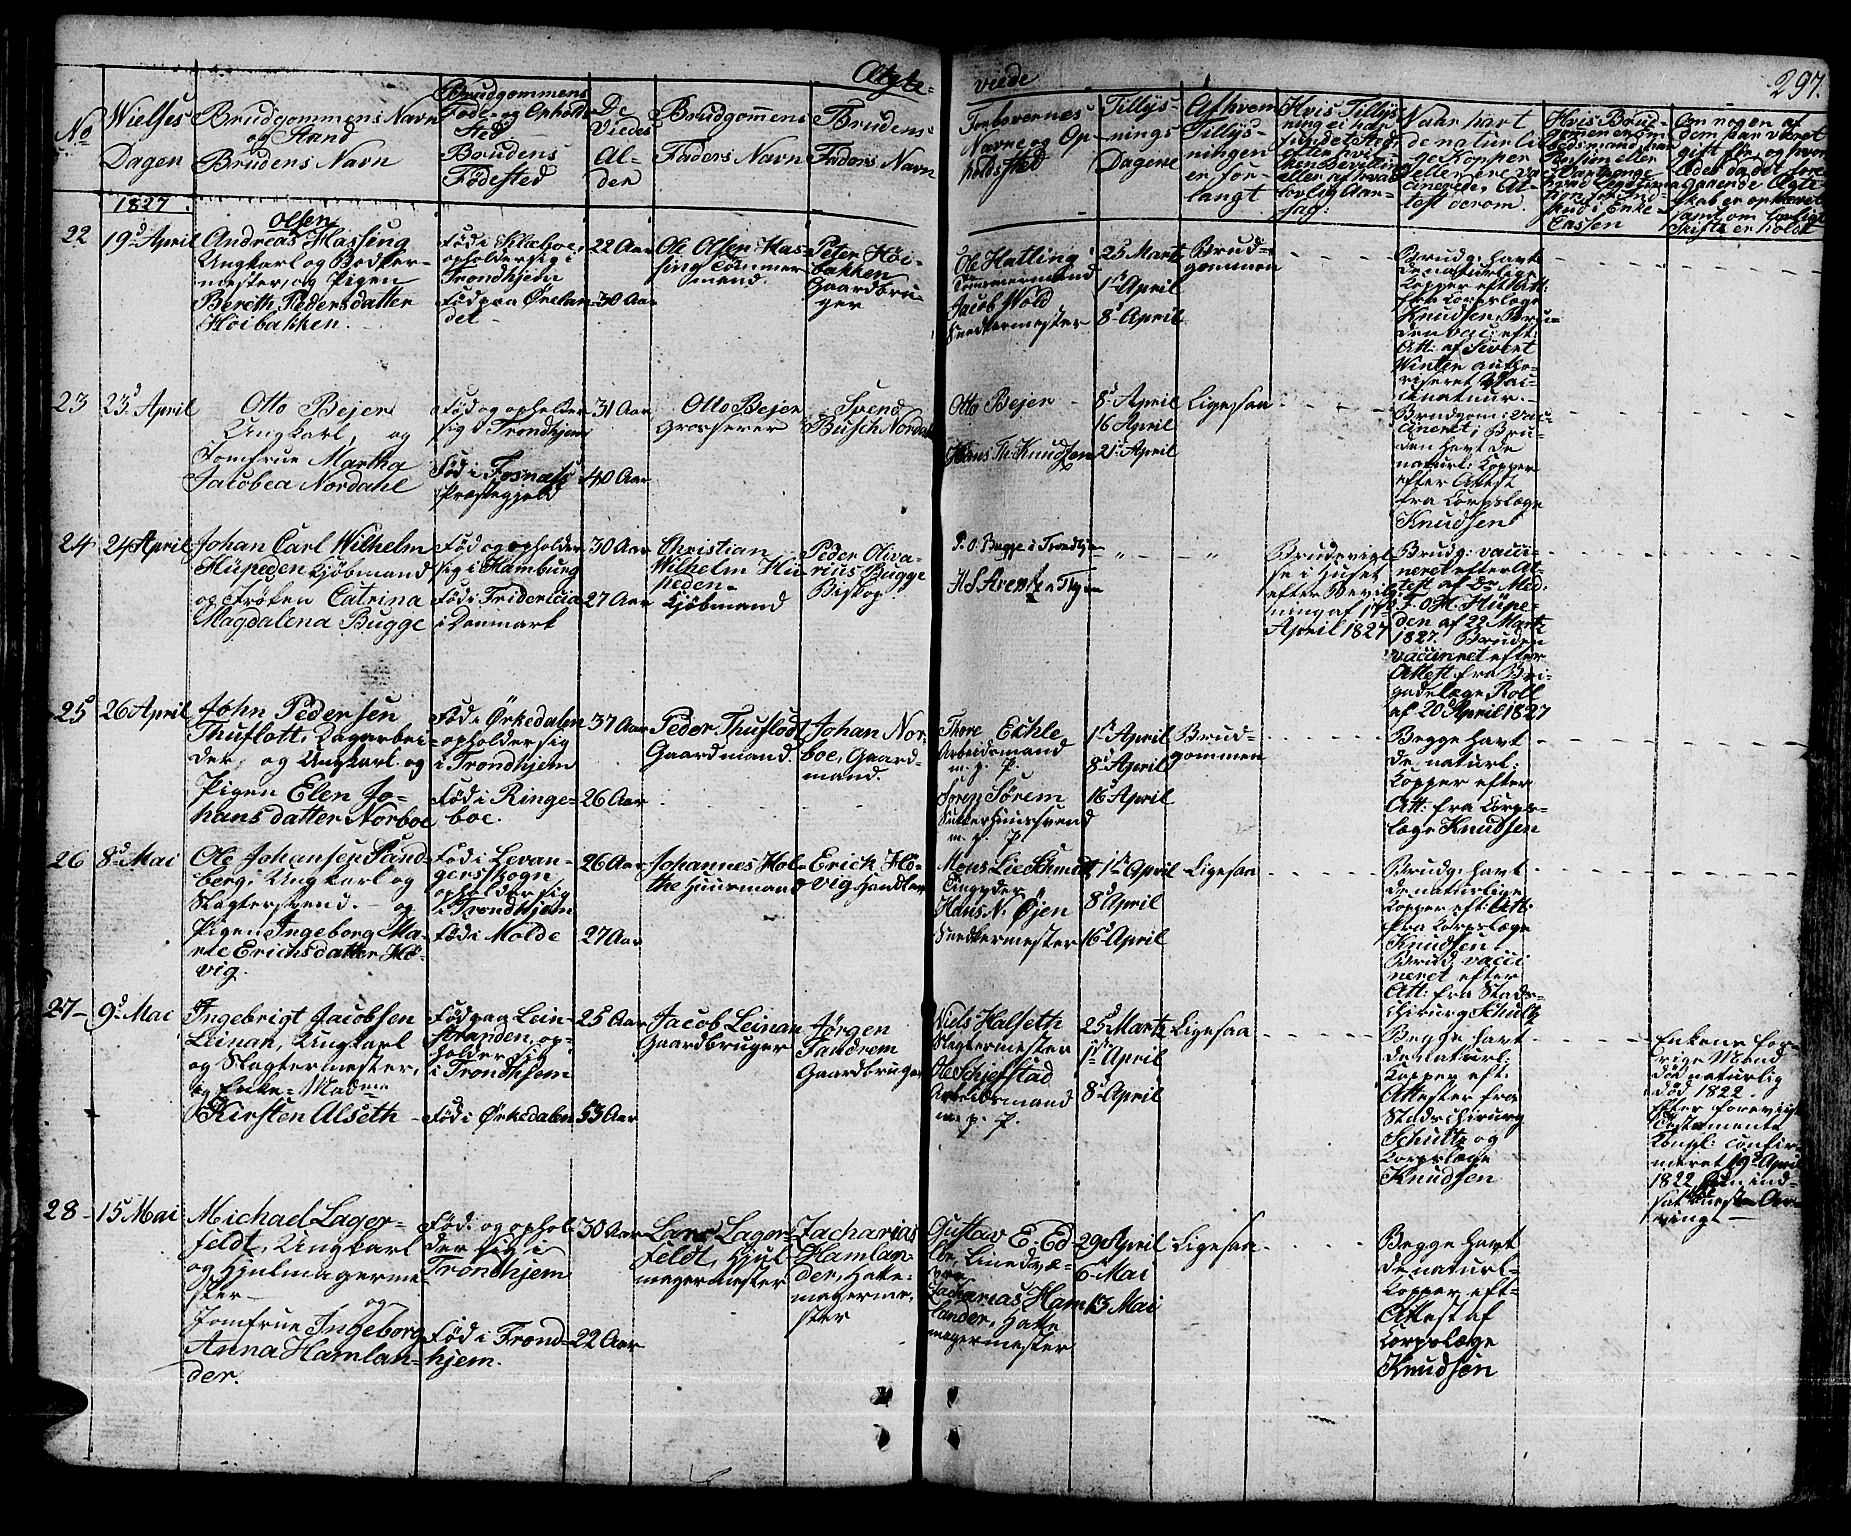 Ægte-
viede
297.
No
Wielses
Dagen
Brudgommens Navn
og Stand
Brudens Navn
Brudgommens
Føde- og Opholds
Sted
Brudens
Fødested
De
Viedes
Al-
der
Brudgommens
Faders Navn
Brudens
Faders Navn
Forlovernes
Navne og Op-
holdsted
Tillys-
nings
Dagene
Af hvem
Tillys-
ningen
er for-
langt
Hvis Tillys-
ning ei har
fundet Sted,
Naar havt
de naturli-
ge Kopper
eller ere va-
cinerede, At-
test derom.
Hvis Brud-
gommen er om
Om nogen af
dem har været
gift før, og hvor-
ledes da det fore-
gaaende Ægte-
skab er ophævet
samt om lovligt
Skifte er holdt
1827
22
19d April
Olsen
Andreas Hassing
Ungkarl og Bødker-
mester, og Pigen
Bereth Pedersdatter
Høibakken.
Fød i Klæboe,
opholder sig i
Trondhjem
Fød paa Ørelan-
det
22 Aar
30 Aar
Ole Olsen Has-
sing Tømmer
mand.
Peter Høi-
bakken
Gaardbru-
ger
Ole Hatling
Tømmermand
Jacob Wold
Snedkermester
25 Marts
1st April
8d April
Brud-
gommen
Brudg: havt
de naturlige
Kopper eft Att:
fra Korpslæge
Knudsen, Bru-
den vac: eft:
Att: af Sivert
Winter autho-
riseret Vac-
cinatuur.
23
23d April
Otto Bejer
Ungkarl, og
Jomfrue Martha
Jacobea Nordahl
Fød og opholder
sig i Trondhjem
Fød i Fosnæss
Præstegjeld
31 Aar
40 Aar
Otto Bejer
Grosserer
Svend
Busch Nordahl
Otto Bejer
Hans Th. Knudsen
8d April
16 April
21d April
Ligesaa
Brudgom: vac-
cineret, Bru-
den havt de
naturl: Kopper
efter Attest
fra Corpslæge
Knudsen
24
24 April
Johan Carl Wilhelm
Hüpeden Kjøbmand
og Frøken Catrina
Magdalena Bugge
Fød og opholder
sig i Hamburg
Fød i Fridericia
i Danmark
30 Aar
27 Aar
Christian
Wilhelm Hü-
peden
Kjøbmand
Peder Oliva-
rius Bugge
Biskop
P. O. Bugge i Trondhjem
"
"
Brudevigel-
se i Huset
efter Bevil-
ning af 17d
April 1827
Brudg: vacci-
neret efter At-
test af Dr. Med:
F. O. H. Hüpe-
den af 22 Marts
1827. Bruden
vaccineret efter
Attest fra Bri-
gadelæge Roll
af 20 April 1827
25
26 April
John Pedersen
Thuflott, Dagarbei-
der, og Ungkarl og
Pigen Elen Jo-
hansdatter Norboe
Fød i Örkedalen
opholder sig
i Trondhjem
Fød i Ringe-
boe.
37 Aar
26 Aar
Peder Thuflod
Gaardmand.
Johan Nor-
boe, Gaard-
mand.
Thore Echle
Arbeidsmand
m. p. P.
Soren Sörem
Sukkerhuussvend
m. p. P.
1st April
8d April
16 April
Brud-
gommen
Begge havt
de naturl:
Kopper efter
Att: fra Corps-
læge Knudsen
26
8d Mai
Ole Johansen Sand-
berg, Ungkarl og
Slagtersvend. og
Pigen Ingeborg Ma-
rie Erichsdatter Hø-
vig.
Fød i Levan-
gersskogn
opholder sig
i Trondhjem
Fød i Molde
26 Aar
27 Aar
Johannes Hol-
the Huusmand
Erich Hø-
vig Handler
Mons Lie Schmidt
Tingyder
Hans N. Øjen
Snedkermester
1st April
8d April
16d April
Ligesaa
Brudg: havt
de naturlige
Kopper eft: Att:
fra Corpslæge
Knudsen
Brud. vacci
neret efter
Att: fra Stads-
chirurg Schultz
27
9d Mai
Ingebrigt Jacobsen
Leinan, Ungkarl
og Slagtermester,
og Enke-Madme
Kirsten Alseth
Fød paa Lein-
stranden, op-
holder sig
i Trondhjem
Fød i Ørkedalen
25 Aar
53 Aar
Jacob Leinan
Gaardbruger
Jörgen
Fandrem
Gaardbruger
Niels Halseth
Slagtermester
Ole Schjefstad
Arbeidsmand
m. p. P.
25d Marts
1st April
8d April
Ligesaa
Begge havt
de naturl:
Kopper eft:
Attester fra
Stadschirurg
Schultz og
Korpslæge
Knudsen
Enkens for-
rige Mand
død naturlig
død 1822.
Efter foreviist
Testamente
Kongl: confir-
meret 19d April
1822 hun ind-
sat
vingt
28
15 Mai
Michael Lager-
feldt, Ungkarl
og Hjulmagerme-
ster
og
Jomfrue Ingeborg
Anna Hamlan-
der.
Fød og ophol-
der sig i
Trondhjem
Fød i Trond-
hjem.
30 Aar
22 Aar
Lars Lager-
feldt, Hjul-
magermester
Zacharias
Hamlan-
der, Hatte-
magerme-
ster
Gustav E. Ed-
Linedvæ-
ver
Zacharias Ham-
lander, Hatte
magermester
29d April
6d Mai
13 Mai
Ligesaa
Begge havt
de naturl-
Kopper eft-
Attest af
Corpslæge
Knudsen